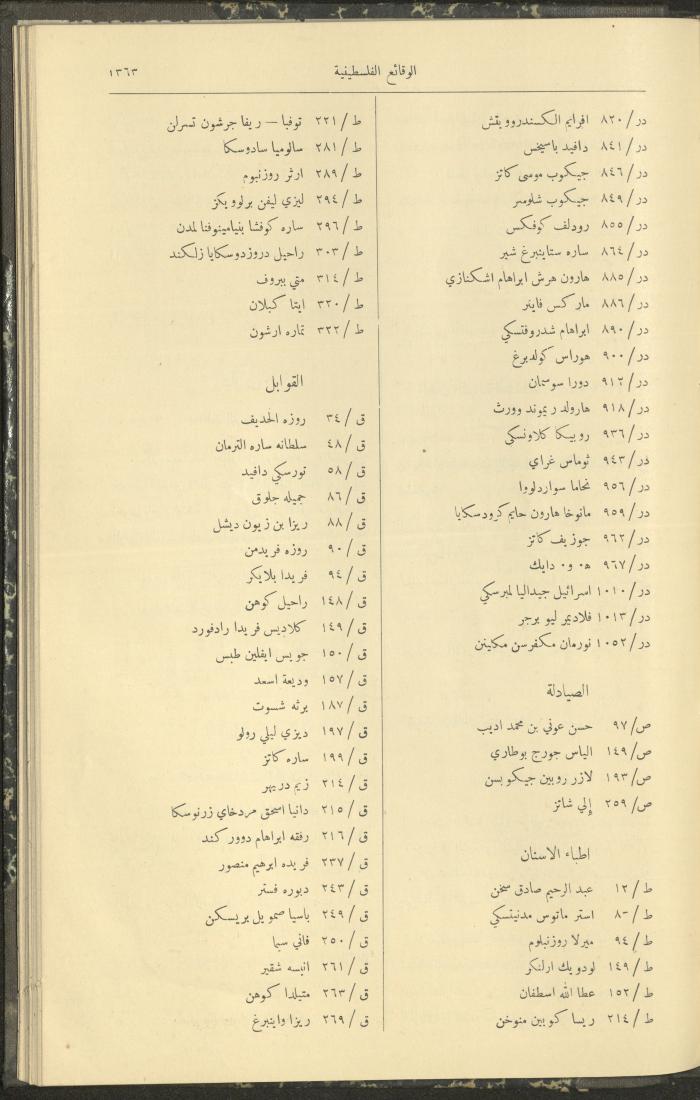 الوقائع الفلسطينية
١٣٦٣
در/ ٨٢٠ افرايم الكسندروويتش
در/ ٨٤١ دافيد باسيخس
در/ ٨٤٦ جيكوب موسى كاتز
در/ ٨٤٩ جيكوب شلومر
در/ ٨٥٥ رودلف كوفكس
در/ ٨٦٤ ساره ستاينبرغ شير
در/ ٨٨٥ هارون هرش ابراهام اشكنازي
در/ ٨٨٦ ماركس فاينر
در/ ٨٩٠ ابراهام شدروفتسكي
در/ ٩٠٠ هوراس كولدبرغ
در/ ٩١٢ دورا سوسمان
در/ ٩١٨ هارولد ريموند وورث
در/ ٩٣٦ روبيكا كلاونسكي
در/ ٩٤٣ ثوماس غراي
در/ ٩٥٦ نحاما سواردلووا
در/ ٩٥٩ مانوخا هارون حايم كرودسكايا
در/ ٩٦٢ جوزيف كاتز
در/ ٩٦٧ ه٠ و٠ دايك
در/ ١٠١٠ اسرائيل جيداليا لمبرسكي
در/ ١٠١٣ فلاديمر ليو برجر
در/ ١٠٥٢ نورمان مكفرسن مكلينن
الصيادلة
ص/ ٩٧ حسن عوني بن محمد اديب
ص/ ١٤٩ الياس جورج بوطاري
ص/ ١٩٣ لازر روبين جيكوبسن
ص/ ٢٥٩ إلي شاتز
اطباء الاسنان
ط/ ١٢ عبد الرحيم صادق سخن
ط/ ٨٠ استر ماتوس مدنيتسكي
ط/ ٩٤ ميرلا روزنبلوم
ط/ ١٤٩ لودويك ارلنكر
ط/ ١٥٢ عطا الله اسطفان
ط/ ٢١٤ ريسا كوبين منوخن
ط/ ٢٢١ توفبا — ريفا جرشون تسرلن
ط/ ٢٨١ سالوميا سادوسكا
ط/ ٢٨٩ ارثر روزنبوم
ط/ ٢٩٤ ليزي ليفن برلوويكز
ط/ ٢٩٦ ساره كوفشا بنيامينوفنا لمدن
ط/ ٣٠٣ راحيل دروزدوسكايا زلكند
ط/ ٣١٤ متي ببروف
ط/ ٣٢٠ ايتا كبلان
ط/ ٣٢٢ تماره ارشون
القوابل
ق/ ٣٤ روزه الحديف
ق/ ٤٨ سلطانه ساره الترمان
ق/ ٥٨ تورسكي دافيد
ق/ ٨٦ جميله جلوق
ق/ ٨٨ ريزا بن زيون ديشل
ق/ ٩٠ روزه فريدمن
ق/ ٩٤ فريدا بلايكر
ق/ ١٤٨ راحيل كوهن
ق/ ١٤٩ كلاديس فريدا رادفورد
ق/ ١٥٠ جويس ايفلين طبس
ق/ ١٥٧ وديعة اسعد
ق/ ١٨٧ برثه شسوت
ق/ ١٩٧ ديزي ليلي رولو
ق/ ١٩٩ ساره كاتز
ق/ ٢١٤ زيم دريهر
ق/ ٢١٥ دانيا اسحق مردخاي زرنوسكا
ق/ ٢١٦ رفقه ابراهام دووركند
ق/ ٢٣٧ فريده ابرهيم منصور
ق/ ٢٤٣ دبوره فستر
ق/ ٢٤٩ باسيا صمويل بريسكن
ق/ ٢٥٠ فاني سبا
ق/ ٢٦١ انيسه شقير
ق/ ٢٦٣ متيلدا كوهن
ق/ ٢٦٩ ريزا واينبرغ